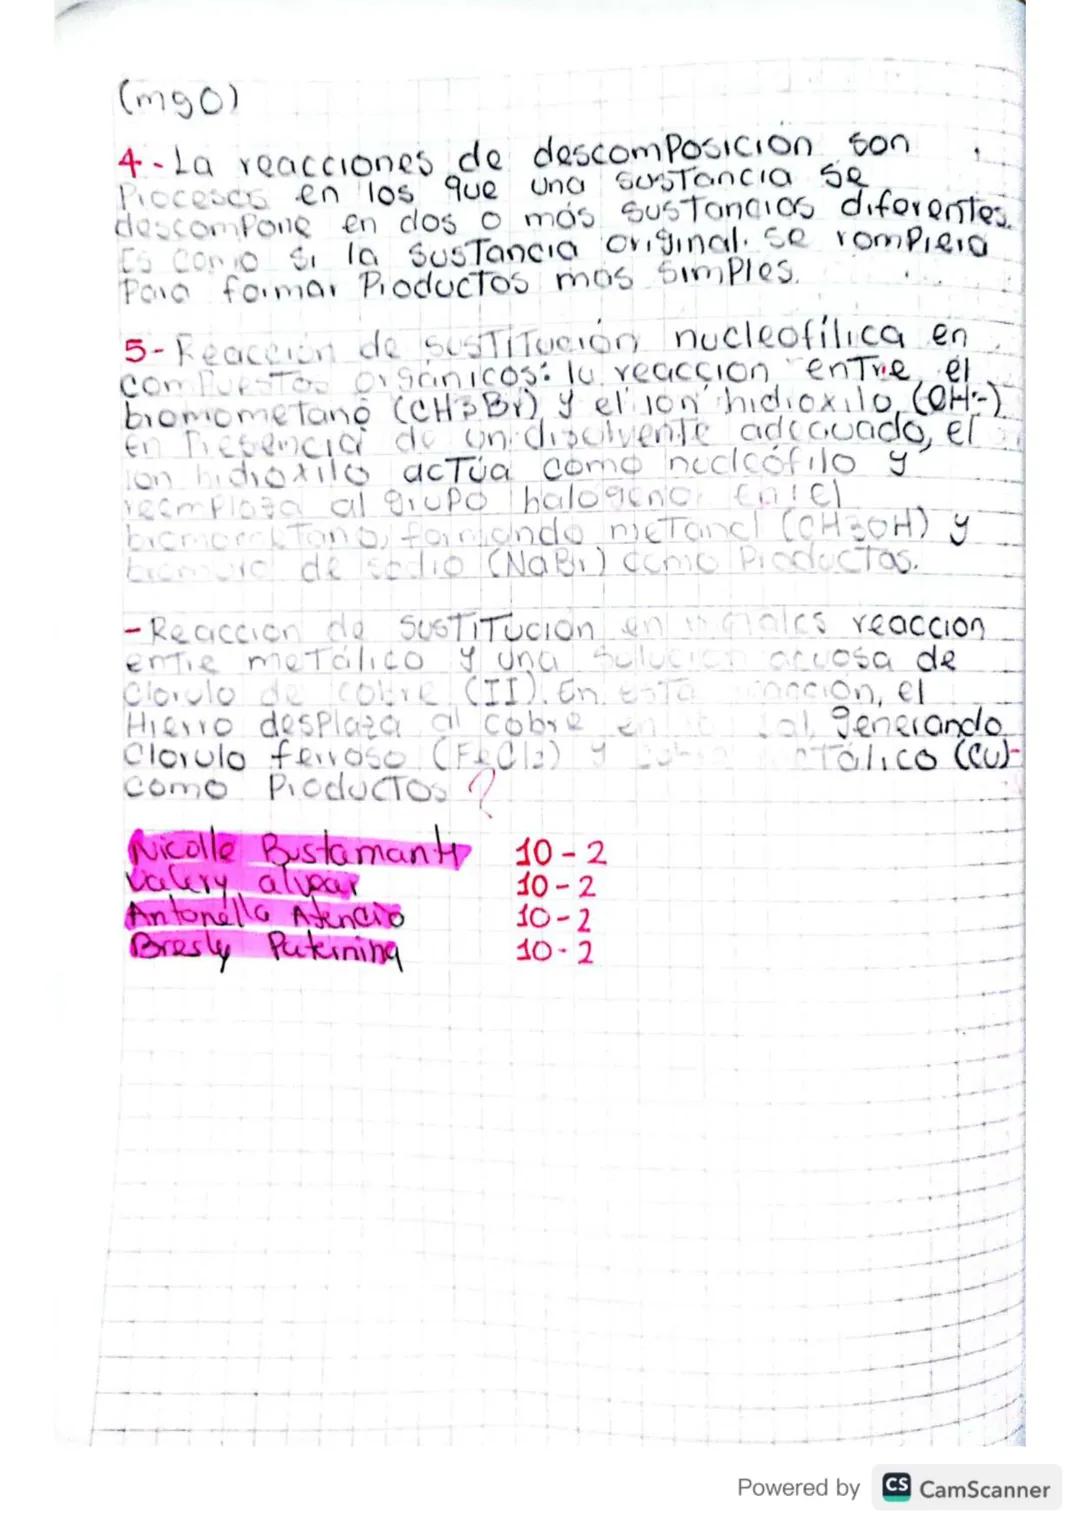 (mgO)
4-La reacciones de descomPosición son
Procesos en los que una susTancia se
descomPone en dos o más susTancias diferentes.
Es como si la susTancia original se romPiera
Para formar ProducTos mas simPles.
5-Reacción de susTiTución nucleofílica en
comPuesTos orgánicos: la reaccion enTre el
bromometano (CH3Br) y el ion hidroxilo (OH-)
en Presencia de un disolvente adecuado, el
ion hidroxilo acTúa como nucleófilo y
reemplaza al grupo halogeno en el
bromometano, formando meTanol (CH3OH) y
bromuro de sodio (NaBr) como ProducTos.
-Reaccion de SusTiTucion en reaccion
enTre meTálico y una solucion acuosa de
Cloruro de cobre (II). En esta reacción, el
Hierro desPlaza al cobre en generando
Cloruro ferroso (FeCl2) y (Cu)-
como ProducTos ?
Nicolle Bustamante 10-2
Valery alvear 10-2
Antonella Atencio 10-2
Bresly Paternina 10-2
Powered by CS CamScanner